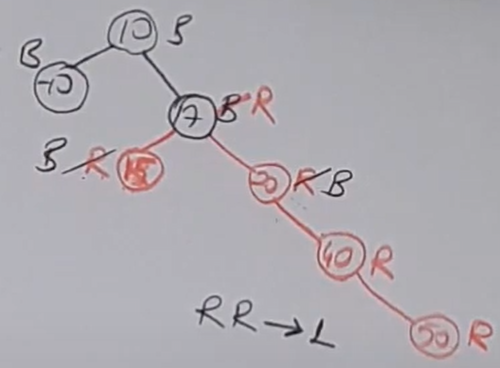 10 B
B
-10
17 B R
B R 15
20 R B
40 R
50 R
RR → L